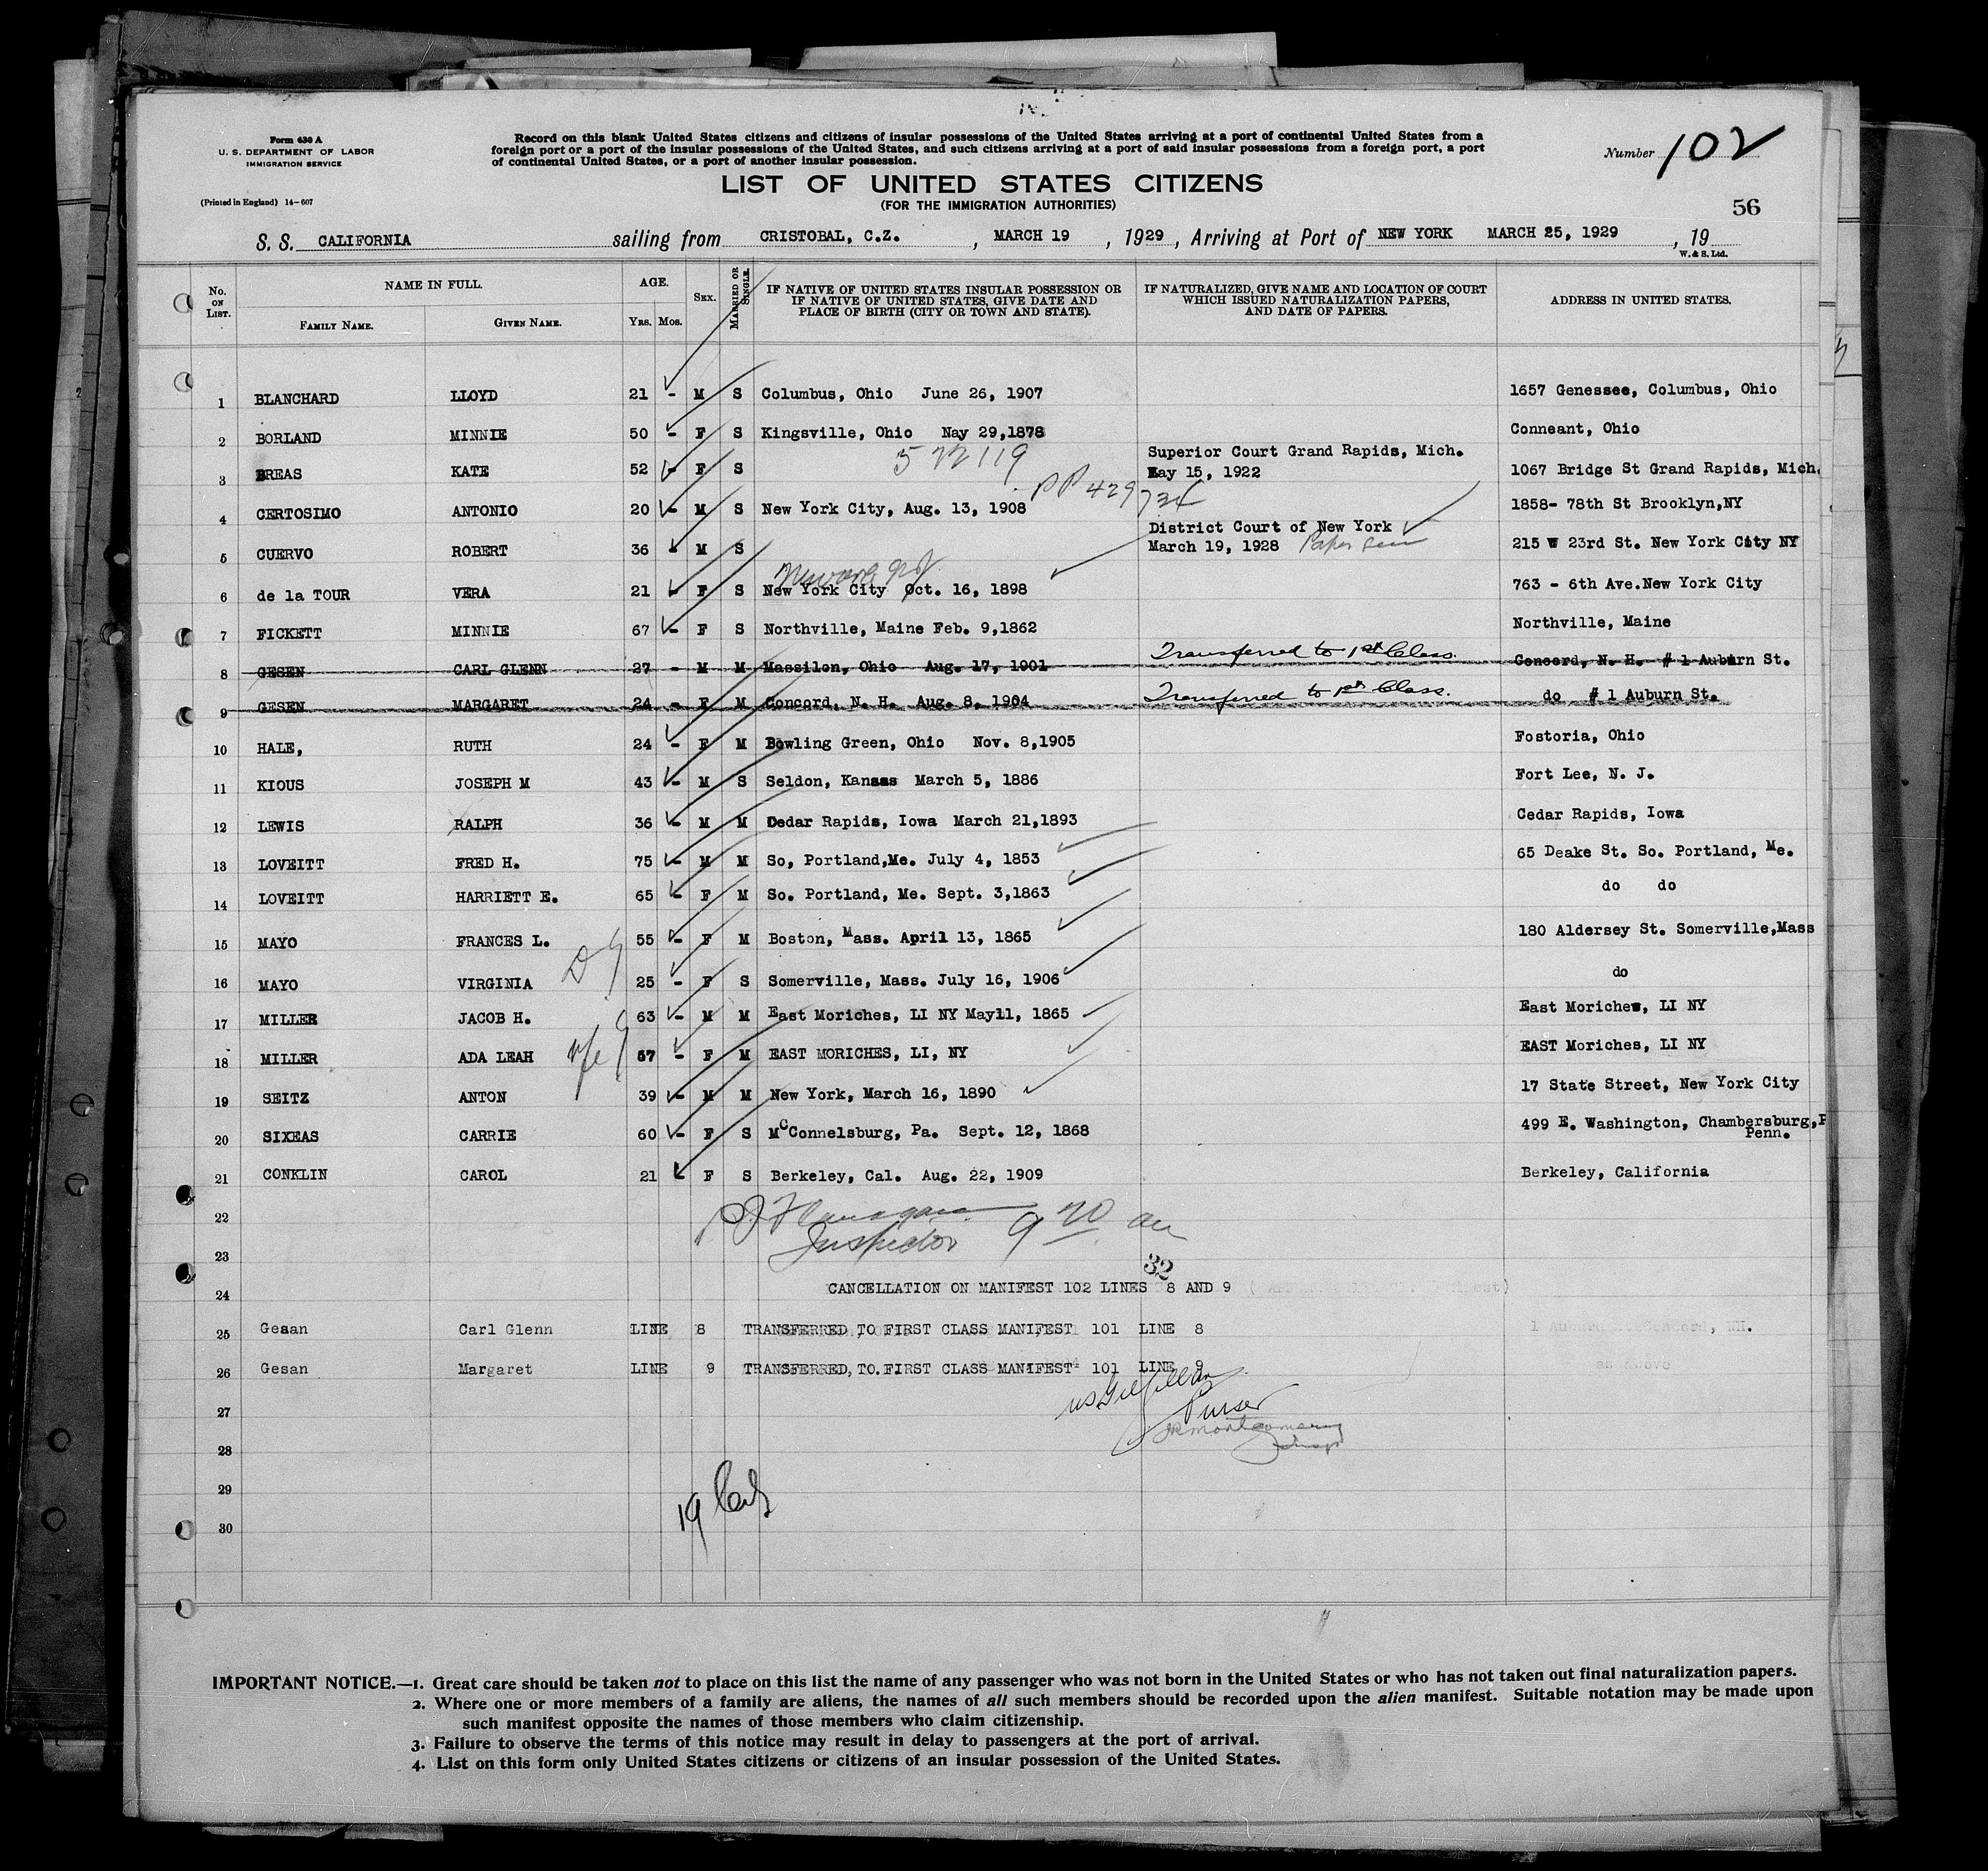 Form 630 A
U. S. DEPARTMENT OF LABOR
IMMIGRATION SERVICE
(Printed in England) 14-607
Record on this blank United States citizens and citizens of insular possessions of the United States arriving at a port of continental United States from a
foreign port or a port of the insular possessions of the United States, and such citizens arriving at a port of said insular possessions from a foreign port, a port
of continental United States, or a port of another insular possession.
Number 102
LIST OF UNITED STATES CITIZENS
(FOR THE IMMIGRATION AUTHORITIES)
56
S. S. CALIFORNIA sailing from CRISTOBAL, C.Z. , MARCH 19 , 1929 , Arriving at Port of NEW YORK MARCH 25, 1929 , 19
W. & S. Ltd.
No. ON LIST. NAME IN FULL. FAMILY NAME. GIVEN NAME. AGE. YRS. MOS. SEX. MARRIED OR SINGLE. IF NATIVE OF UNITED STATES INSULAR POSSESSION OR IF NATIVE OF UNITED STATES, GIVE DATE AND PLACE OF BIRTH (CITY OR TOWN AND STATE). IF NATURALIZED, GIVE NAME AND LOCATION OF COURT WHICH ISSUED NATURALIZATION PAPERS, AND DATE OF PAPERS. ADDRESS IN UNITED STATES.
1 BLANCHARD LLOYD 21 - M S Columbus, Ohio June 26, 1907 1657 Genessee, Columbus, Ohio
2 BORLAND MINNIE 50 - F S Kingsville, Ohio Nay 29,1878 Conneant, Ohio
572119 Superior Court Grand Rapids, Mich.
3 BREAS KATE 52 - F S May 15, 1922 1067 Bridge St Grand Rapids, Mich.
PP 429734
4 CERTOSIMO ANTONIO 20 - M S New York City, Aug. 13, 1908 1858- 78th St Brooklyn,NY
District Court of New York
5 CUERVO ROBERT 36 - M S March 19, 1928 Paper seen 215 W 23rd St. New York City NY
Newark NJ
6 de la TOUR VERA 21 - F S New York City Oct. 16, 1898 763 - 6th Ave.New York City
7 FICKETT MINNIE 67 - F S Northville, Maine Feb. 9,1862 Northville, Maine
8 GESEN CARL GLENN 27 - M M Massilon, Ohio Aug. 17, 1901 Transferred to 1st Class. Concord, N. H. # 1 Auburn St.
9 GESEN MARGARET 24 - F M Concord, N. H. Aug. 8, 1904 Transferred to 1st Class. do # 1 Auburn St.
10 HALE, RUTH 24 - F M Bowling Green, Ohio Nov. 8,1905 Fostoria, Ohio
11 KIOUS JOSEPH M 43 - M S Seldon, Kansas March 5, 1886 Fort Lee, N. J.
12 LEWIS RALPH 36 - M M Cedar Rapids, Iowa March 21,1893 Cedar Rapids, Iowa
13 LOVEITT FRED H. 75 - M M So, Portland,Me. July 4, 1853 65 Deake St. So. Portland, Me.
14 LOVEITT HARRIETT E. 65 - F M So. Portland, Me. Sept. 3,1863 do do
15 MAYO FRANCES L. 55 - F M Boston, Mass. April 13, 1865 180 Aldersey St. Somerville,Mass
16 MAYO VIRGINIA 25 - F S Somerville, Mass. July 16, 1906 do
17 MILLER JACOB H. 63 - M M East Moriches, LI NY May11, 1865 East Moriches, LI NY
18 MILLER ADA LEAH 57 - F M EAST MORICHES, LI, NY EAST Moriches, LI NY
19 SEITZ ANTON 39 - M M New York, March 16, 1890 17 State Street, New York City
20 SIXEAS CARRIE 60 - F S McConnelsburg, Pa. Sept. 12, 1868 499 E. Washington, Chambersburg,P
Penn.
21 CONKLIN CAROL 21 F S Berkeley, Cal. Aug. 22, 1909 Berkeley, California
22 Flanagan 9 20 am
23 Inspector
32
24 CANCELLATION ON MANIFEST 102 LINES 8 AND 9
25 Gesan Carl Glenn LINE 8 TRANSFERRED TO FIRST CLASS MANIFEST 101 LINE 8 1 Auburn Concord, NH.
26 Gesan Margaret LINE 9 TRANSFERRED TO FIRST CLASS MANIFEST 101 LINE 9 as above
27 Purser
Montgomery
28 Insp
29
19
30
IMPORTANT NOTICE.—1. Great care should be taken not to place on this list the name of any passenger who was not born in the United States or who has not taken out final naturalization papers.
2. Where one or more members of a family are aliens, the names of all such members should be recorded upon the alien manifest. Suitable notation may be made upon
such manifest opposite the names of those members who claim citizenship.
3. Failure to observe the terms of this notice may result in delay to passengers at the port of arrival.
4. List on this form only United States citizens or citizens of an insular possession of the United States.